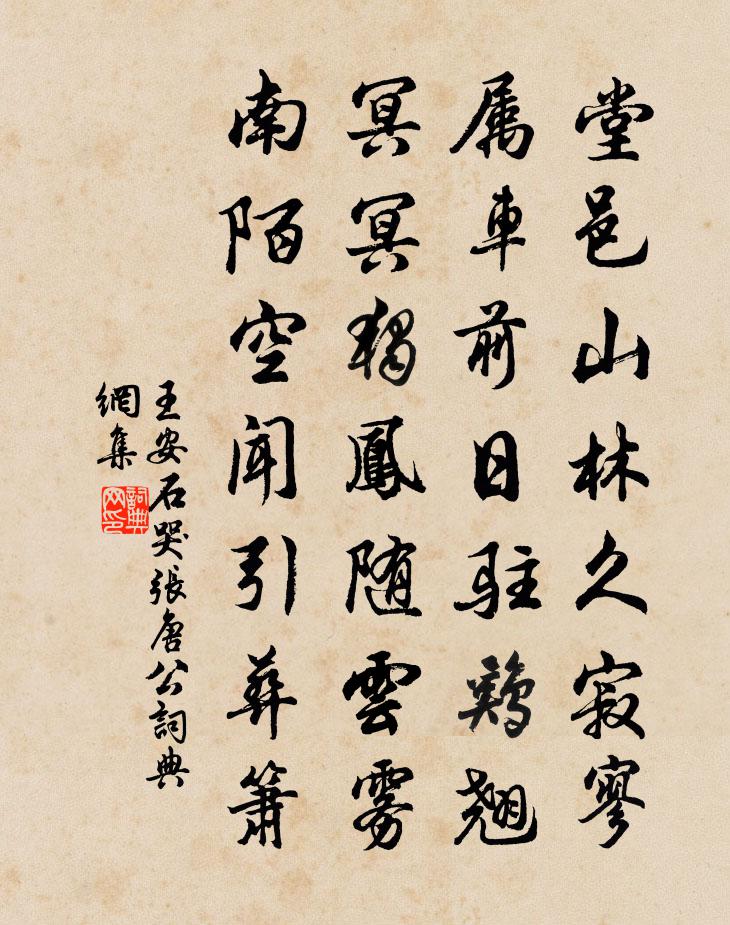 堂邑山林久寂寥
属車前日駐鷄翹
冥冥獨鳳隨雲雾
南陌空聞引葬簫
王安石哭張唐公詞典
網集
詞典
网印